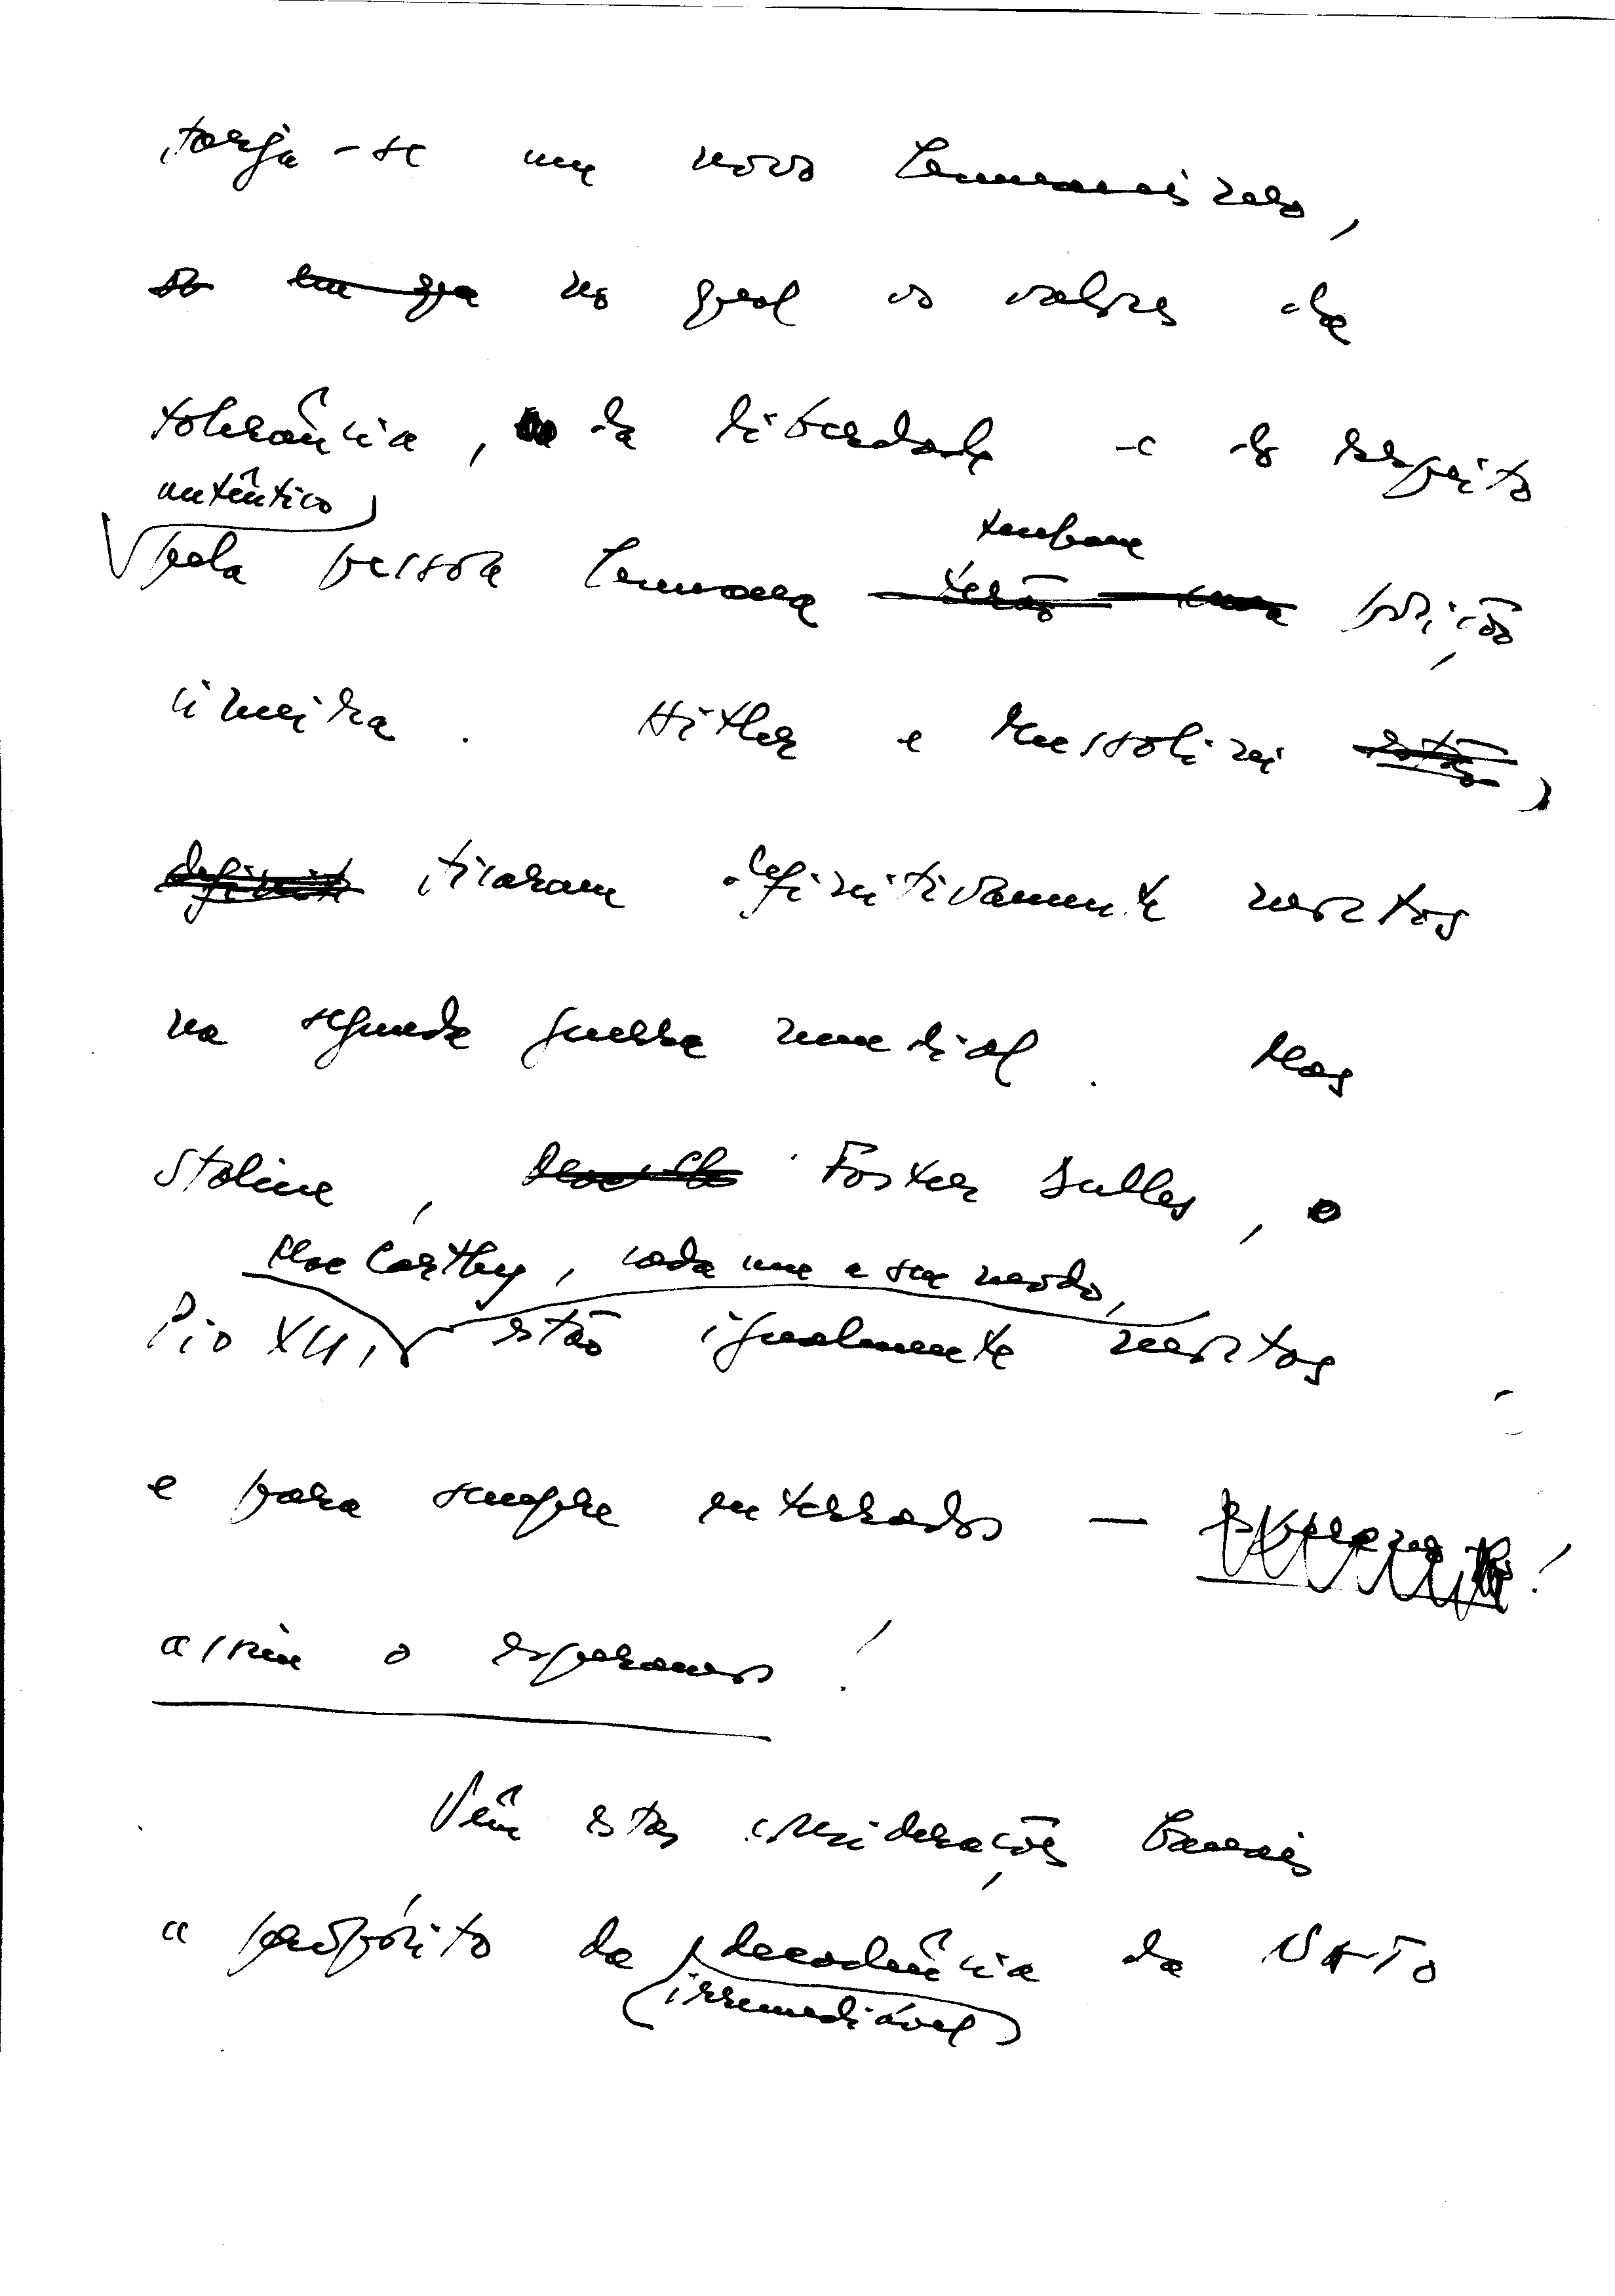 forja-se um novo humanismo,
no qual os valores da
tolerância, da liberdade e do respeito
autêntico
pela pessoa humana ocupam posição
cimeira. Hitler e Mussolini
ficaram definitivamente mortos
na segunda guerra mundial. Mas
Staline, Foster Dulles,
Mac Carthy, cada um a seu modo,
Pio XII, estão igualmente mortos
e para sempre enterrados —
assim o esperamos!
Vêm estas considerações banais
a propósito da decadência da NATO
irremediável